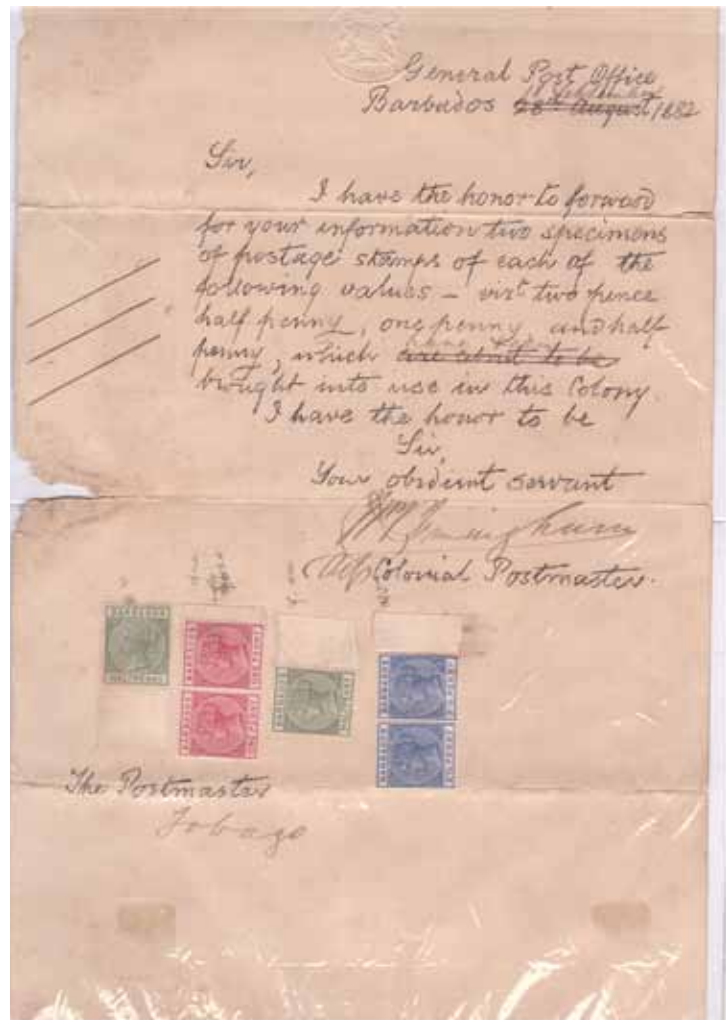 General Post Office
18 September
Barbados 28th August 1882
Sir,
I have the honor to forward
for your information two specimens
of postage stamps of each of the
following values – vizt two pence
half penny, one penny, and half
have been
penny, which are about to be
brought into use in this Colony.
I have the honor to be
Sir,
Your obedient servant
Colonial Postmaster.
BARBADOS
HALFPENNY
The Postmaster
Tobago